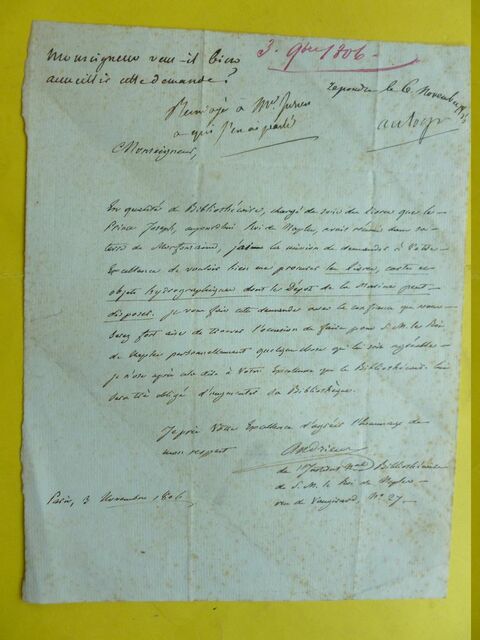 Monseigneur veut-il bien
accueillir cette demande?
3. 9bre 1806.
répondu le 6. Novembre
Renvoyé à Mr.
a qui j'en ai parlé
Monseigneur,
En qualité de Bibliothécaire, chargé du soin des livres que le
Prince Joseph, aujourdhui Roi de Naples, avait réunis dans sa
terre de Morfontaine, j'ai la mission de demander à Votre
Excellence de vouloir bien me procurer les livres, cartes et
objets hydrographiques dont le Dépôt de la Marine peut
disposer. je vous fais cette demande avec la confiance que vous
serez fort aise de trouver l'occasion de faire pour S. M. le Roi
de Naples personnellement quelque chose qui lui soit agréable
je n'ose après cela dire à Votre Excellence que le Bibliothécaire lui
sera très obligé d'augmenter sa Bibliothèque.
Je prie Votre Excellence d'agréer l'hommage de
mon respect
Andrieux
de l'Institut Nal Bibliothécaire
de S. M. le Roi de Naples
rue de Vaugirard No 27.
Paris, 3 Novembre 1806